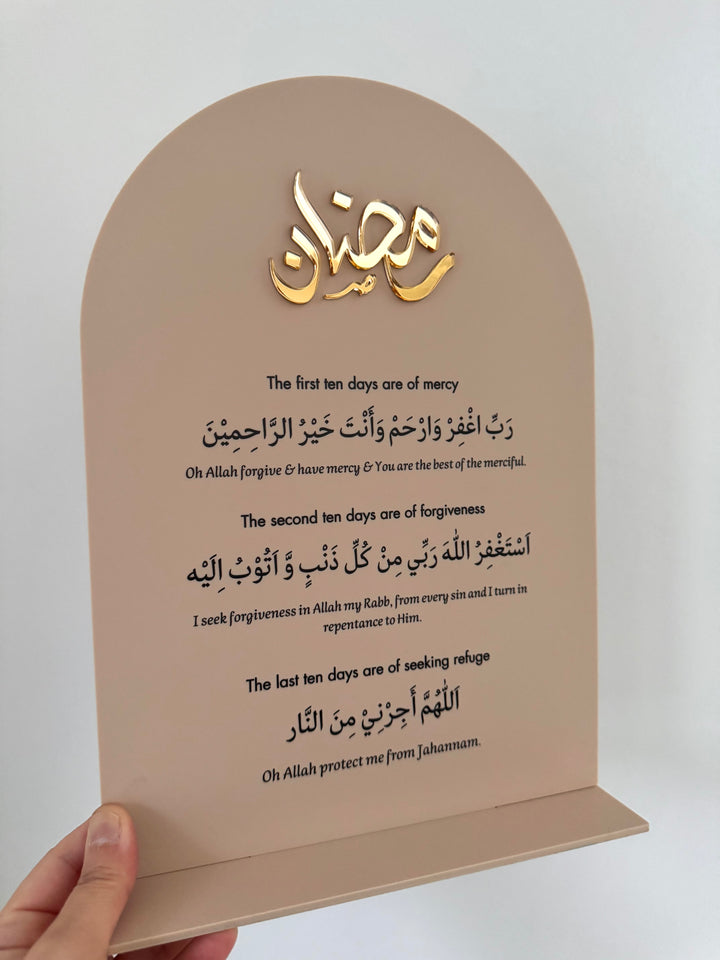 رمضان
The first ten days are of mercy
رَبِّ اغْفِرْ وَارْحَمْ وَأَنْتَ خَيْرُ الرَّاحِمِيْنَ
Oh Allah forgive & have mercy & You are the best of the merciful.
The second ten days are of forgiveness
اَسْتَغْفِرُ اللّٰهَ رَبِّي مِنْ كُلِّ ذَنْبٍ وَّ اَتُوْبُ اِلَيْه
I seek forgiveness in Allah my Rabb, from every sin and I turn in
repentance to Him.
The last ten days are of seeking refuge
اَللّٰهُمَّ أَجِرْنِيْ مِنَ النَّار
Oh Allah protect me from Jahannam.